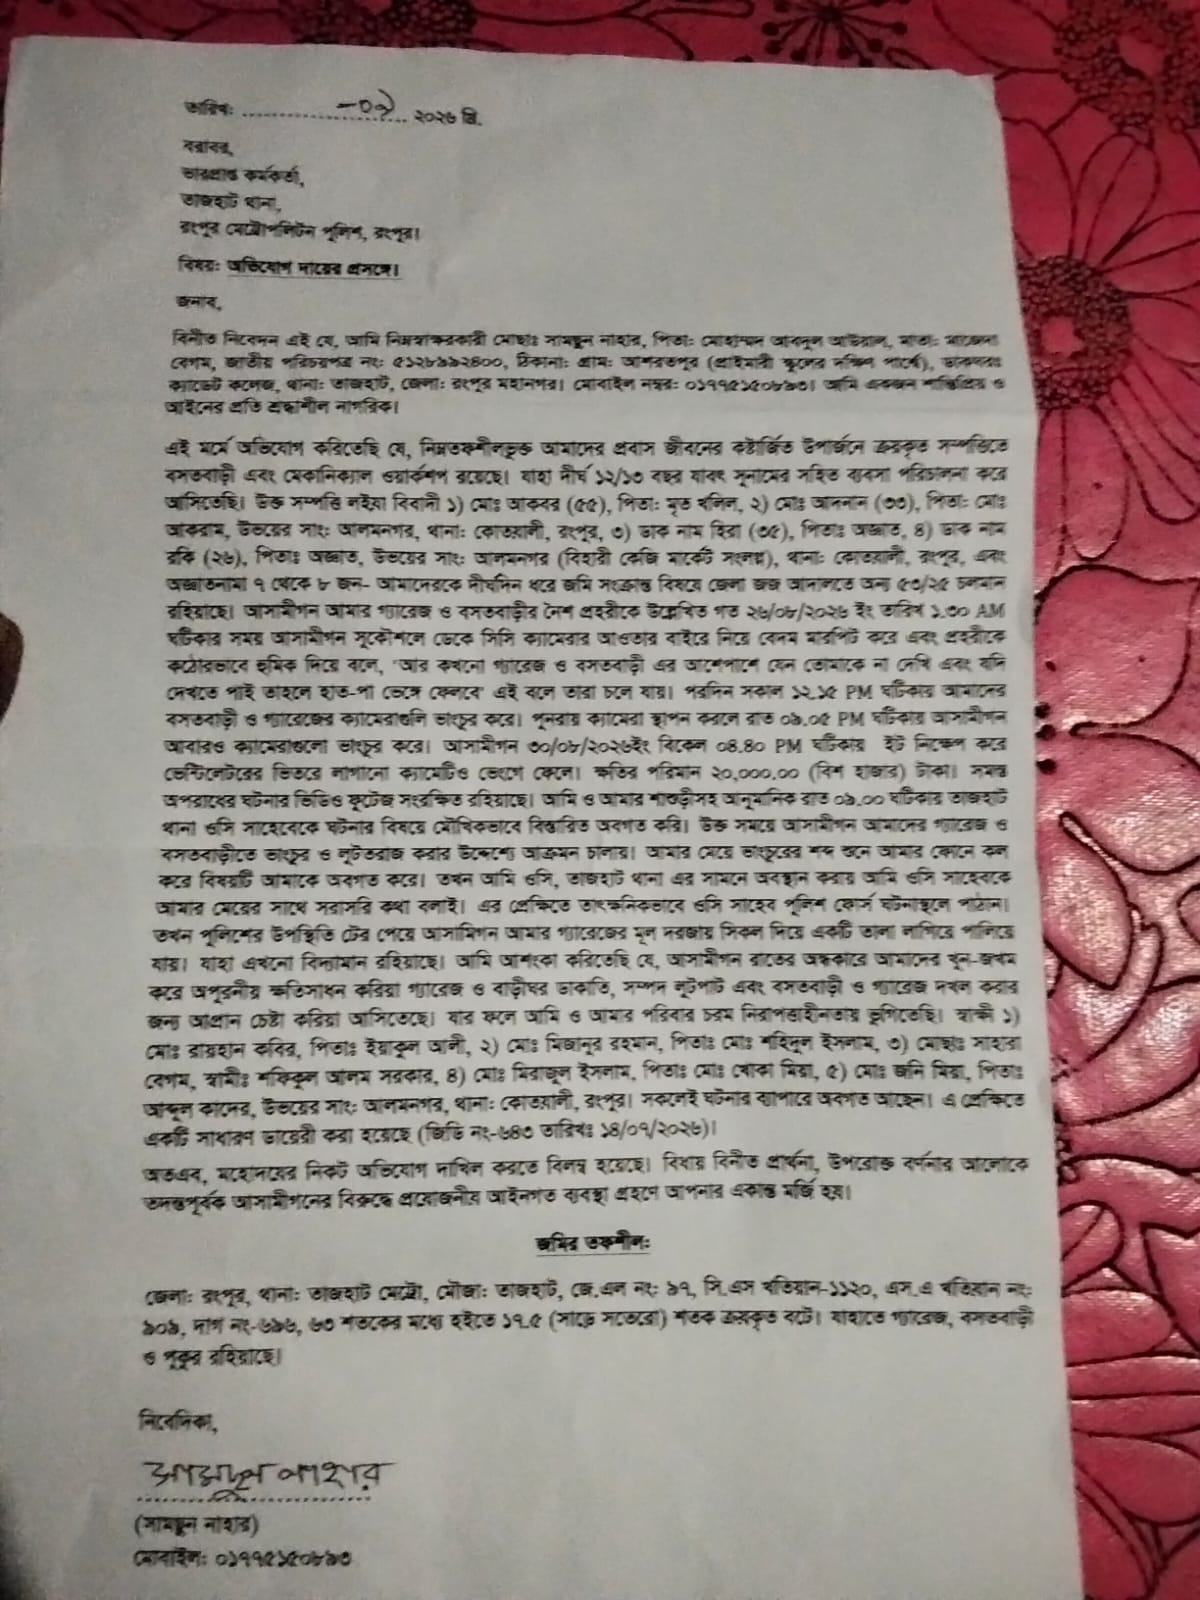 তারিখ: ..................-০৯.. ২০২৬ খ্রি.
বরাবর,
ভারপ্রাপ্ত কর্মকর্তা,
তাজহাট থানা,
রংপুর মেট্রোপলিটন পুলিশ, রংপুর।
বিষয়: অভিযোগ দায়ের প্রসঙ্গে।
জনাব,
বিনীত নিবেদন এই যে, আমি নিম্নস্বাক্ষরকারী মোছাঃ সামছুন নাহার, পিতা: মোহাম্মদ আবদুল আউয়াল, মাতা: মাজেদা
বেগম, জাতীয় পরিচয়পত্র নং: ৫১২৮৯৯২৪০০, ঠিকানা: গ্রাম: আশরতপুর (প্রাইমারী স্কুলের দক্ষিণ পার্শ্বে), ডাকঘরঃ
ক্যাডেট কলেজ, থানা: তাজহাট, জেলা: রংপুর মহানগর। মোবাইল নম্বর: ০১৭৭৫১৫০৮৯৩। আমি একজন শান্তিপ্রিয় ও
আইনের প্রতি শ্রদ্ধাশীল নাগরিক।
এই মর্মে অভিযোগ করিতেছি যে, নিম্নতফশীলভুক্ত আমাদের প্রবাস জীবনের কষ্টার্জিত উপার্জনে ক্রয়কৃত সম্পত্তিতে
বসতবাড়ী এবং মেকানিক্যাল ওয়ার্কশপ রয়েছে। যাহা দীর্ঘ ১২/১৩ বছর যাবৎ সুনামের সহিত ব্যবসা পরিচালনা করে
আসিতেছি। উক্ত সম্পত্তি লইয়া বিবাদী ১) মোঃ আকবর (৫৫), পিতা: মৃত খলিল, ২) মোঃ আদনান (৩৩), পিতা: মোঃ
আকরাম, উভয়ের সাং: আলমনগর, থানা: কোতয়ালী, রংপুর, ৩) ডাক নাম হিরা (৩৫), পিতাঃ অজ্ঞাত, ৪) ডাক নাম
রকি (২৬), পিতাঃ অজ্ঞাত, উভয়ের সাং: আলমনগর (বিহারী কেজি মার্কেট সংলগ্ন), থানা: কোতয়ালী, রংপুর, এবং
অজ্ঞাতনামা ৭ থেকে ৮ জন- আমাদেরকে দীর্ঘদিন ধরে জমি সংক্রান্ত বিষয়ে জেলা জজ আদালতে অন্য ৫৩/২৫ চলমান
রহিয়াছে। আসামীগন আমার গ্যারেজ ও বসতবাড়ীর নৈশ প্রহরীকে উল্লেখিত গত ২৬/০৮/২০২৬ ইং তারিখ ১.৩০ AM
ঘটিকার সময় আসামীগন সুকৌশলে ডেকে সিসি ক্যামেরার আওতার বাইরে নিয়ে বেদম মারপিট করে এবং প্রহরীকে
কঠোরভাবে হুমিক দিয়ে বলে, 'আর কখনো গ্যারেজ ও বসতবাড়ী এর আশেপাশে যেন তোমাকে না দেখি এবং যদি
দেখতে পাই তাহলে হাত-পা ভেঙ্গে ফেলবে' এই বলে তারা চলে যায়। পরদিন সকাল ১২.১৫ PM ঘটিকায় আমাদের
বসতবাড়ী ও গ্যারেজের ক্যামেরাগুলি ভাংচুর করে। পুনরায় ক্যামেরা স্থাপন করলে রাত ০৯.০৫ PM ঘটিকায় আসামীগন
আবারও ক্যামেরাগুলো ভাংচুর করে। আসামীগন ৩০/০৮/২০২৬ইং বিকেল ০৪.৪০ PM ঘটিকায় ইট নিক্ষেপ করে
ভেন্টিলেটরের ভিতরে লাগানো ক্যামেটিও ভেংগে ফেলে। ক্ষতির পরিমান ২০,০০০.০০ (বিশ হাজার) টাকা। সমস্ত
অপরাধের ঘটনার ভিডিও ফুটেজ সংরক্ষিত রহিয়াছে। আমি ও আমার শাশুড়ীসহ আনুমানিক রাত ০৯.০০ ঘটিকায় তাজহাট
থানা ওসি সাহেবেকে ঘটনার বিষয়ে মৌখিকভাবে বিস্তারিত অবগত করি। উক্ত সময়ে আসামীগন আমাদের গ্যারেজ ও
বসতবাড়ীতে ভাংচুর ও লুটতরাজ করার উদ্দেশ্যে আক্রমন চালায়। আমার মেয়ে ভাংচুরের শব্দ শুনে আমার ফোনে কল
করে বিষয়টি আমাকে অবগত করে। তখন আমি ওসি, তাজহাট থানা এর সামনে অবস্থান করায় আমি ওসি সাহেবকে
আমার মেয়ের সাথে সরাসরি কথা বলাই। এর প্রেক্ষিতে তাৎক্ষনিকভাবে ওসি সাহেব পুলিশ ফোর্স ঘটনাস্থলে পাঠান।
তখন পুলিশের উপস্থিতি টের পেয়ে আসামিগন আমার গ্যারেজের মূল দরজায় সিকল দিয়ে একটি তালা লাগিয়ে পালিয়ে
যায়। যাহা এখনো বিদ্যমান রহিয়াছে। আমি আশংকা করিতেছি যে, আসামীগন রাতের অন্ধকারে আমাদের খুন-জখম
করে অপূরনীয় ক্ষতিসাধন করিয়া গ্যারেজ ও বাড়ীঘর ডাকাতি, সম্পদ লুটপাট এবং বসতবাড়ী ও গ্যারেজ দখল করার
জন্য আপ্রান চেষ্টা করিয়া আসিতেছে। যার ফলে আমি ও আমার পরিবার চরম নিরাপত্তাহীনতায় ভুগিতেছি। স্বাক্ষী ১)
মোঃ রায়হান কবির, পিতাঃ ইয়াকুল আলী, ২) মোঃ মিজানুর রহমান, পিতাঃ মোঃ শহিদুল ইসলাম, ৩) মোছাঃ সাহারা
বেগম, স্বামীঃ শফিকুল আলম সরকার, ৪) মোঃ মিরাজুল ইসলাম, পিতাঃ মোঃ খোকা মিয়া, ৫) মোঃ জনি মিয়া, পিতাঃ
আব্দুল কাদের, উভয়ের সাং: আলমনগর, থানা: কোতয়ালী, রংপুর। সকলেই ঘটনার ব্যাপারে অবগত আছেন। এ প্রেক্ষিতে
একটি সাধারণ ডায়েরী করা হয়েছে (জিডি নং-৬৪৩ তারিখঃ ১৪/০৭/২০২৬)।
অতএব, মহোদয়ের নিকট অভিযোগ দাখিল করতে বিলম্ব হয়েছে। বিধায় বিনীত প্রার্থনা, উপরোক্ত বর্ণনার আলোকে
তদন্তপূর্বক আসামীগনের বিরুদ্ধে প্রয়োজনীয় আইনগত ব্যবস্থা গ্রহণে আপনার একান্ত মর্জি হয়।
জমির তফশীল:
জেলা: রংপুর, থানা: তাজহাট মেট্রো, মৌজা: তাজহাট, জে.এল নং: ৯৭, সি.এস খতিয়ান-১১২০, এস.এ খতিয়ান নং:
৯০৯, দাগ নং-৬৯৬, ৬৩ শতকের মধ্যে হইতে ১৭.৫ (সাড়ে সতেরো) শতক ক্রয়কৃত বটে। যাহাতে গ্যারেজ, বসতবাড়ী
ও পুকুর রহিয়াছে।
নিবেদিকা,
সামছুন নাহার
(সামছুন নাহার)
মোবাইল: ০১৭৭৫১৫০৮৯৩